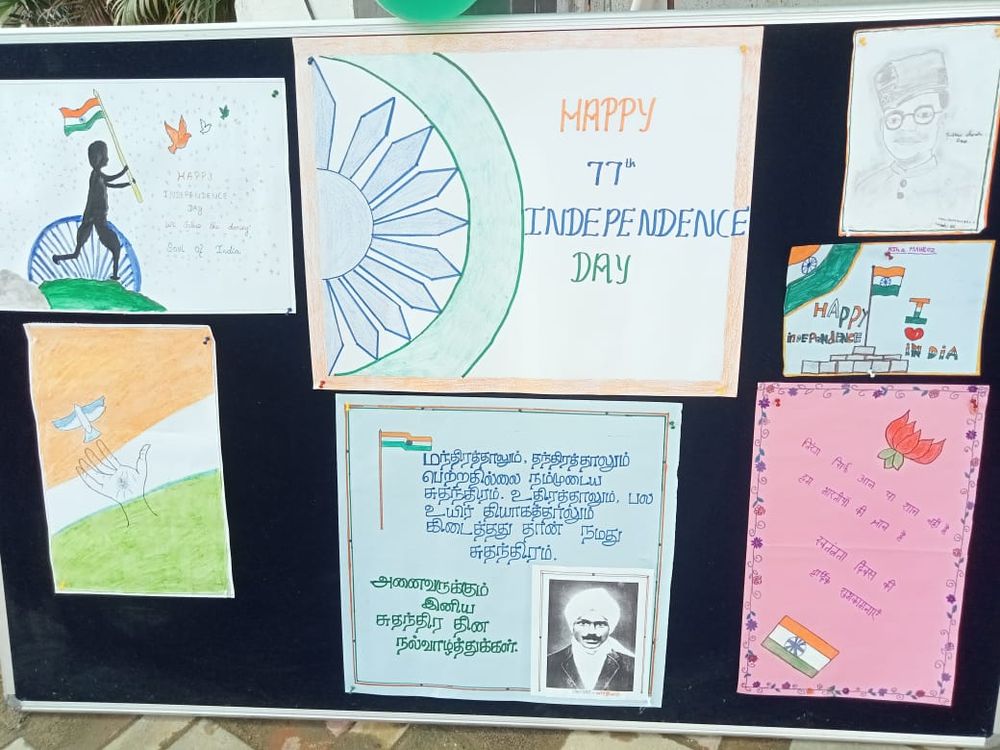 HAPPY
INDEPENDENCE
DAY
Soul of India
HAPPY
77th
INDEPENDENCE
DAY
HAPPY
INDEPENDENCE
I
INDIA
மந்திரத்தாலும், தந்திரத்தாலும்
பெற்றதில்லை நம்முடைய
சுதந்திரம். உதிரத்தாலும், பல
உயிர் தியாகத்தாலும்
கிடைத்தது தான் நமது
சுதந்திரம்.
அனைவருக்கும்
இனிய
சுதந்திர தின
நல்வாழ்த்துக்கள்.
तिरंगा सिर्फ आन या शान नही है
हम भारतीयों की जान है
स्वतंत्रता दिवस की
हार्दिक
शुभकामनाएँ